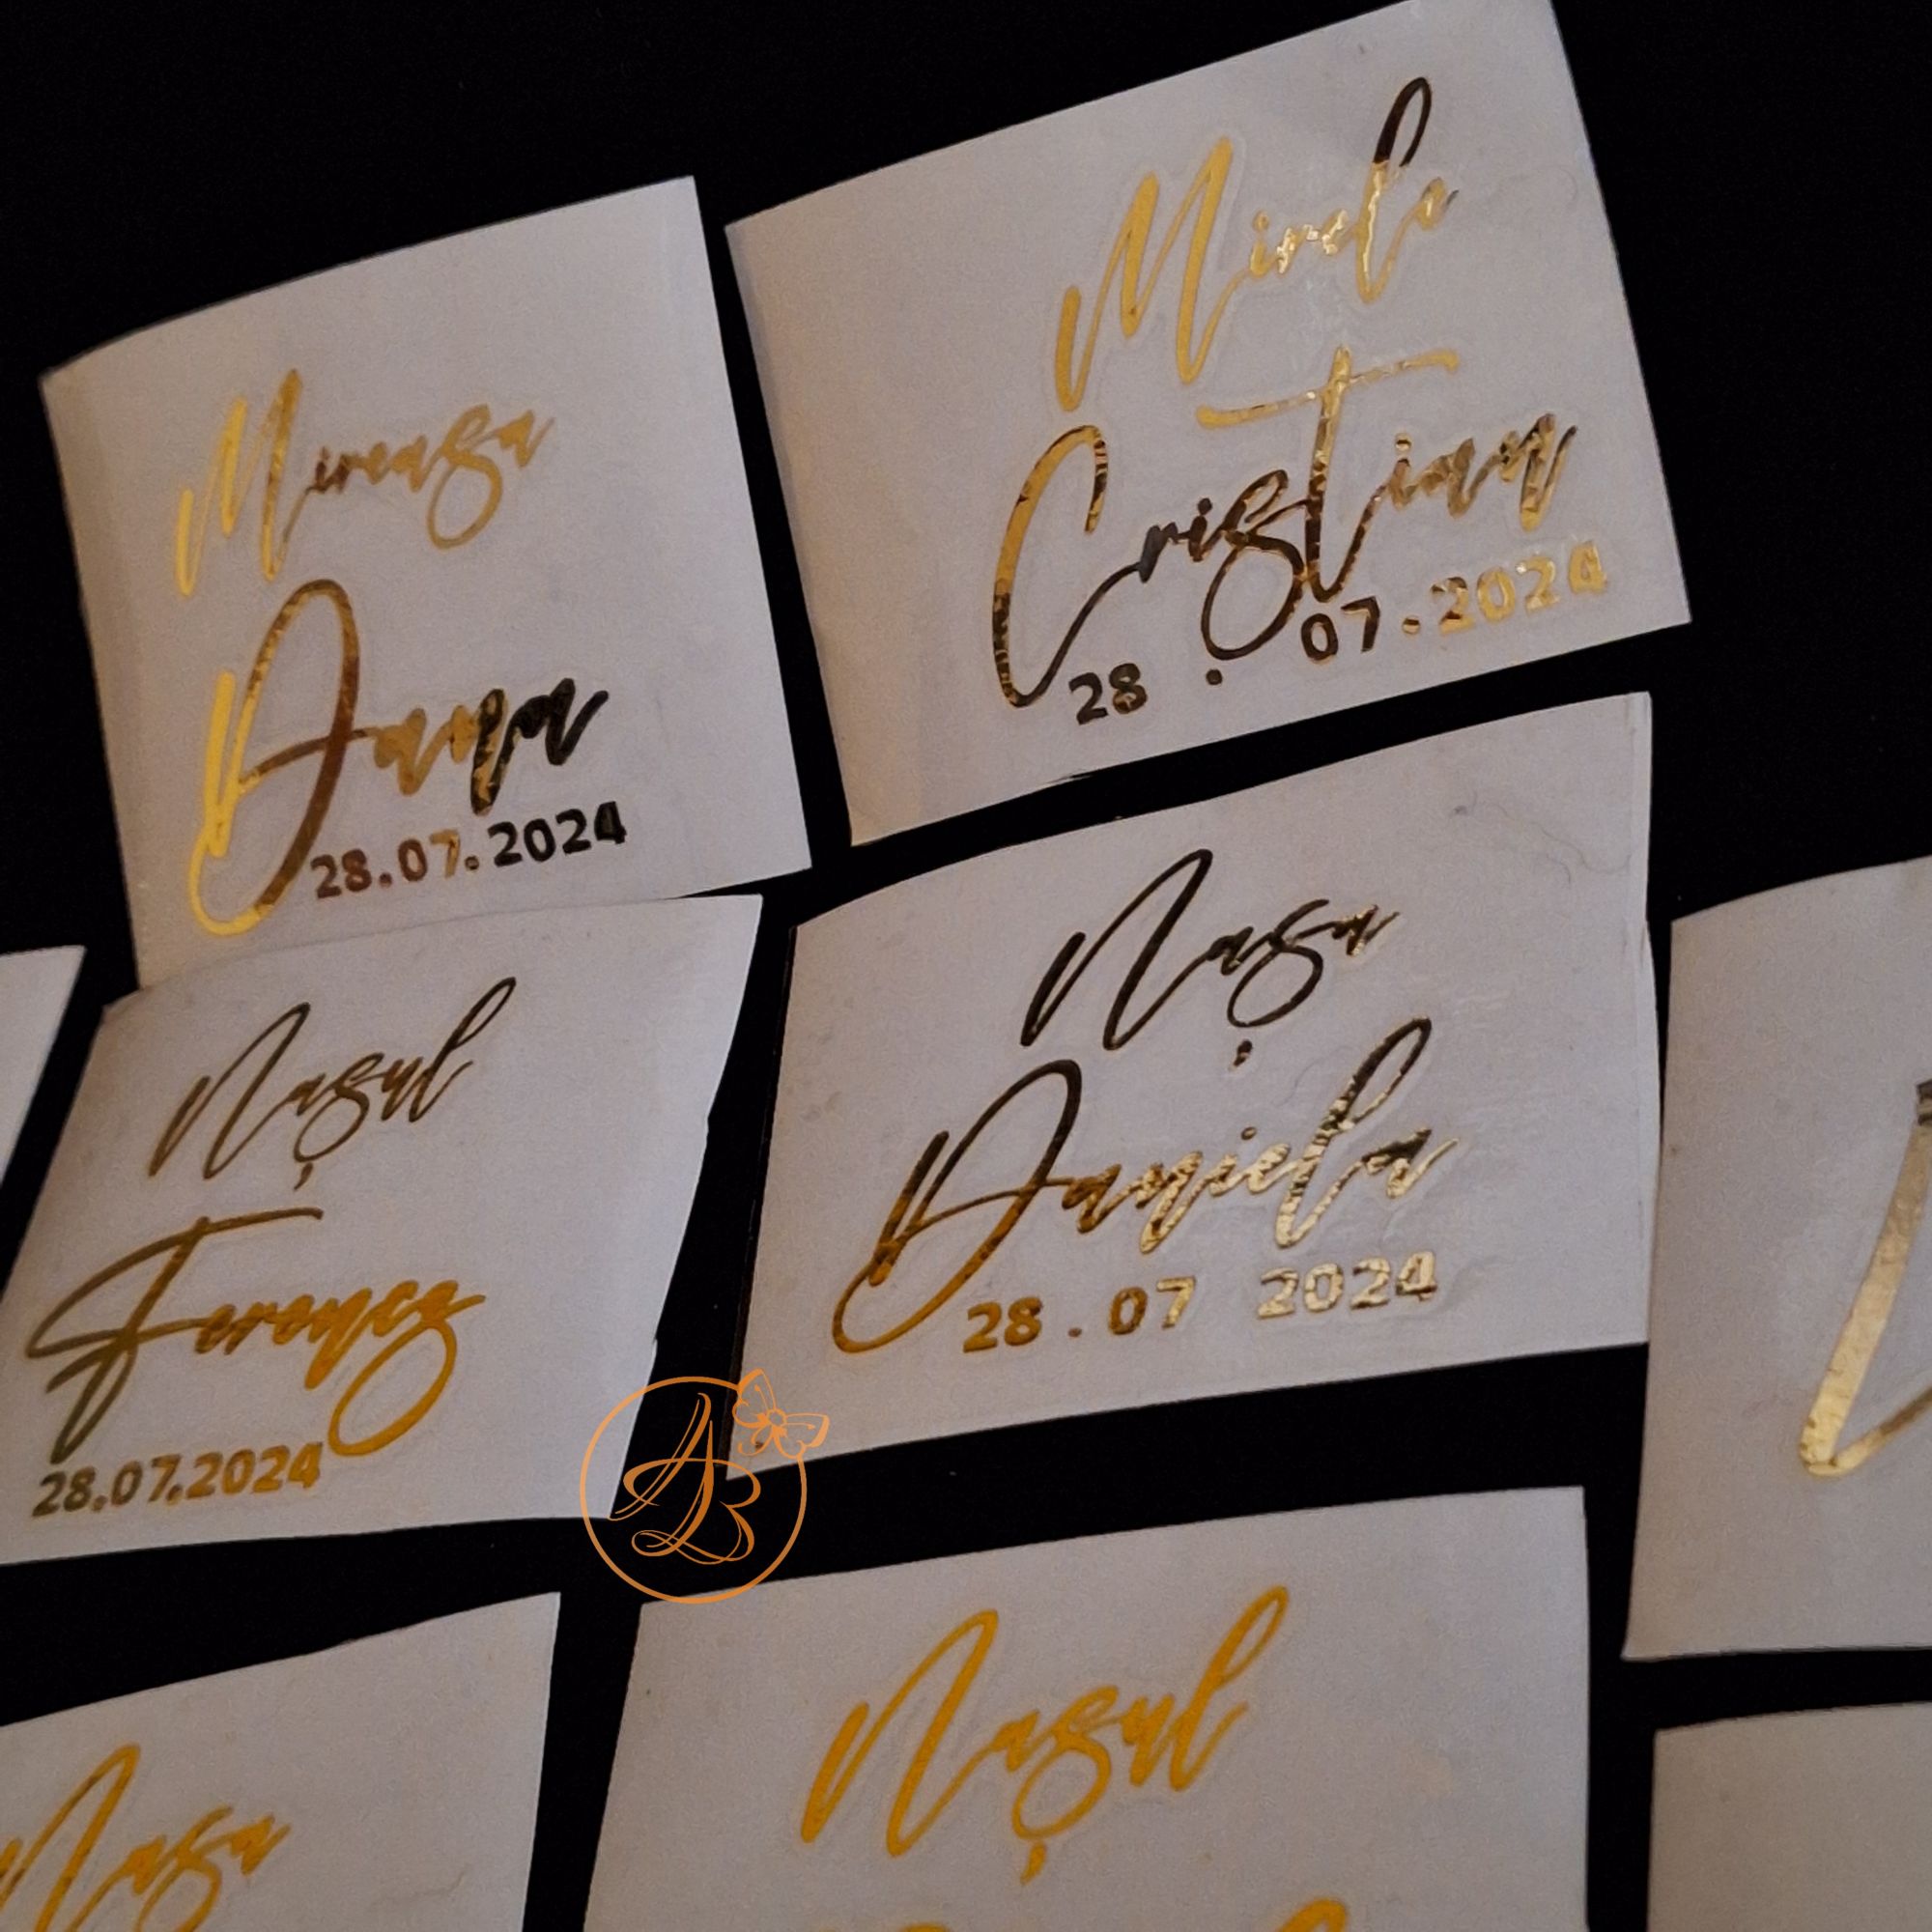 Mireasa
Dana
28.07.2024
Mirele
Cristian
28.07.2024
Nașul
Ferencz
28.07.2024
Nașa
Daniela
28.07 2024
AB
Nașa
Nașul